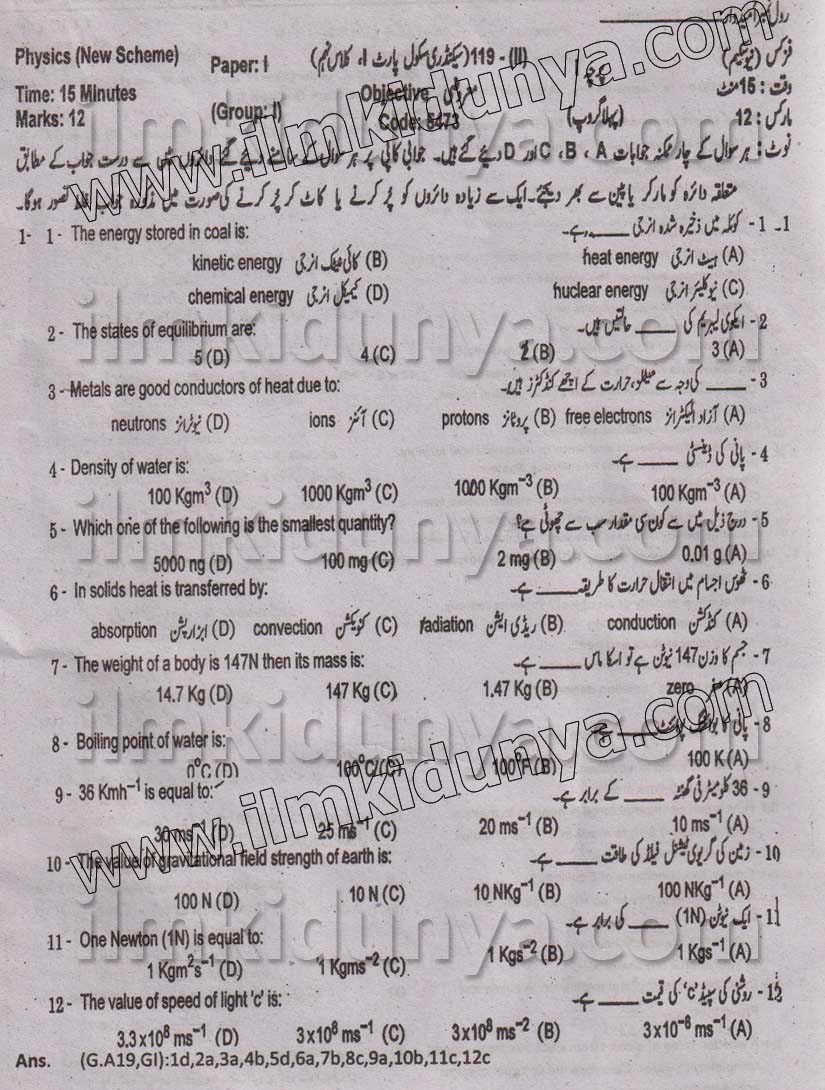 Physics (New Scheme) Paper: I 119 - (II) (سیکنڈری سکول پارٹ I، کلاس نہم) فزکس (نیو سکیم)
Time: 15 Minutes Objective وقت : 15 منٹ
Marks: 12 (Group: I) Code: 5473 (پہلا گروپ) مارکس : 12
نوٹ : ہر سوال کے چار ممکنہ جوابات A ، B ، C اور D دیئے گئے ہیں۔ جوابی کاپی پر ہر سوال کے سامنے دیئے گئے دائروں میں سے درست جواب کے مطابق
متعلقہ دائرہ کو مارکر یا پین سے بھر دیجئے۔ ایک سے زیادہ دائروں کو پُر کرنے یا کاٹ کر پُر کرنے کی صورت میں مذکورہ جواب غلط تصور ہوگا۔
1- 1 - The energy stored in coal is: 1۔ 1 - کوئلہ میں ذخیرہ شدہ انرجی ____ ہے۔
kinetic energy کائی نیٹک انرجی (B) heat energy ہیٹ انرجی (A)
chemical energy کیمیکل انرجی (D) nuclear energy نیوکلیئر انرجی (C)
2 - The states of equilibrium are: 2 - ایکوی لبریم کی ____ حالتیں ہیں۔
5 (D) 4 (C) 2 (B) 3 (A)
3 - Metals are good conductors of heat due to: 3 - ____ کی وجہ سے میٹلز، حرارت کے اچھے کنڈکٹرز ہیں۔
neutrons نیوٹرانز (D) ions آئنز (C) protons پروٹانز (B) free electrons آزاد الیکٹرانز (A)
4 - Density of water is: 4 - پانی کی ڈینسٹی ____ ہے۔
100 Kgm³ (D) 1000 Kgm³ (C) 1000 Kgm⁻³ (B) 100 Kgm⁻³ (A)
5 - Which one of the following is the smallest quantity? 5 - درج ذیل میں سے کون سی مقدار سب سے چھوٹی ہے؟
5000 ng (D) 100 mg (C) 2 mg (B) 0.01 g (A)
6 - In solids heat is transferred by: 6 - ٹھوس اجسام میں انتقال حرارت کا طریقہ ____ ہے۔
absorption ابزارپشن (D) convection کنویکشن (C) radiation ریڈی ایشن (B) conduction کنڈکشن (A)
7 - The weight of a body is 147N then its mass is: 7 - جسم کا وزن 147 نیوٹن ہے تو اسکا ماس ____ ہے۔
14.7 Kg (D) 147 Kg (C) 1.47 Kg (B) zero صفر (A)
8 - Boiling point of water is: 8 - پانی کا بوائلنگ پوائنٹ ____ ہے۔
0°C (D) 100°C (C) 100°F (B) 100 K (A)
9 - 36 Kmh⁻¹ is equal to: 9 - 36 کلومیٹر فی گھنٹہ ____ کے برابر ہے۔
30 ms⁻¹ (D) 25 ms⁻¹ (C) 20 ms⁻¹ (B) 10 ms⁻¹ (A)
10 - The value of gravitational field strength of earth is: 10 - زمین کی گریوی ٹیشنل فیلڈ کی طاقت ____ ہے۔
100 N (D) 10 N (C) 10 NKg⁻¹ (B) 100 NKg⁻¹ (A)
11 - One Newton (1N) is equal to: 11 - ایک نیوٹن (1N) ____ کی برابر ہے۔
1 Kgm²s⁻¹ (D) 1 Kgms⁻² (C) 1 Kgs⁻² (B) 1 Kgs⁻¹ (A)
12 - The value of speed of light 'c' is: 12 - روشنی کی سپیڈ 'c' کی قیمت ____ ہے۔
3.3x10⁸ ms⁻¹ (D) 3x10⁸ ms⁻¹ (C) 3x10⁸ ms⁻² (B) 3x10⁻⁸ ms⁻¹ (A)
Ans. (G.A19,GI):1d,2a,3a,4b,5d,6a,7b,8c,9a,10b,11c,12c
www.ilmkidunya.com
ilmkidunya.com
ilmkidunya.com
ilmkidunya.com
ilmkidunya.com
www.ilmkidunya.com
ilmkidunya.com